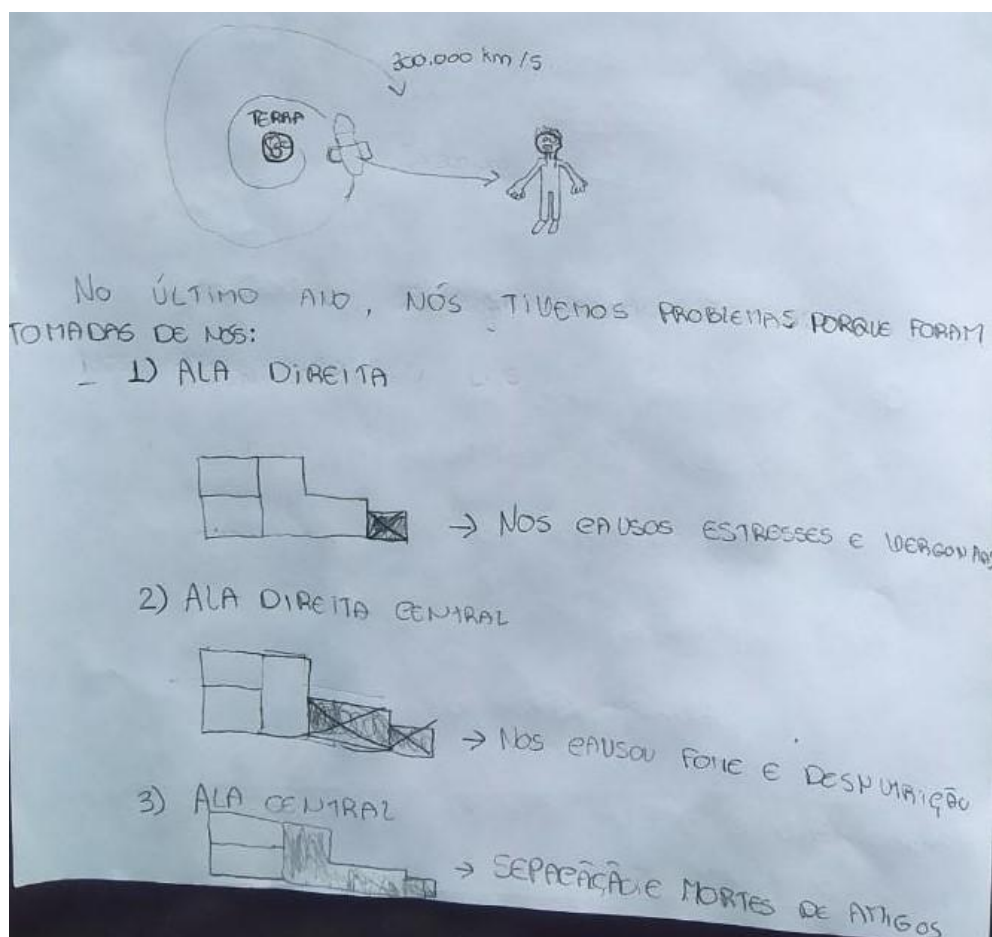 300.000 km/s
TERRA
NO ÚLTIMO ANO, NÓS TIVEMOS PROBLEMAS PORQUE FORAM
TOMADAS DE NÓS:
1) ALA DIREITA
→ NOS CAUSOS ESTRESSES E VERGONHAS
2) ALA DIREITA CENTRAL
→ NOS CAUSOU FOME E DESNUTRIÇÃO
3) ALA CENTRAL
→ SEPARAÇÃO E MORTES DE AMIGOS